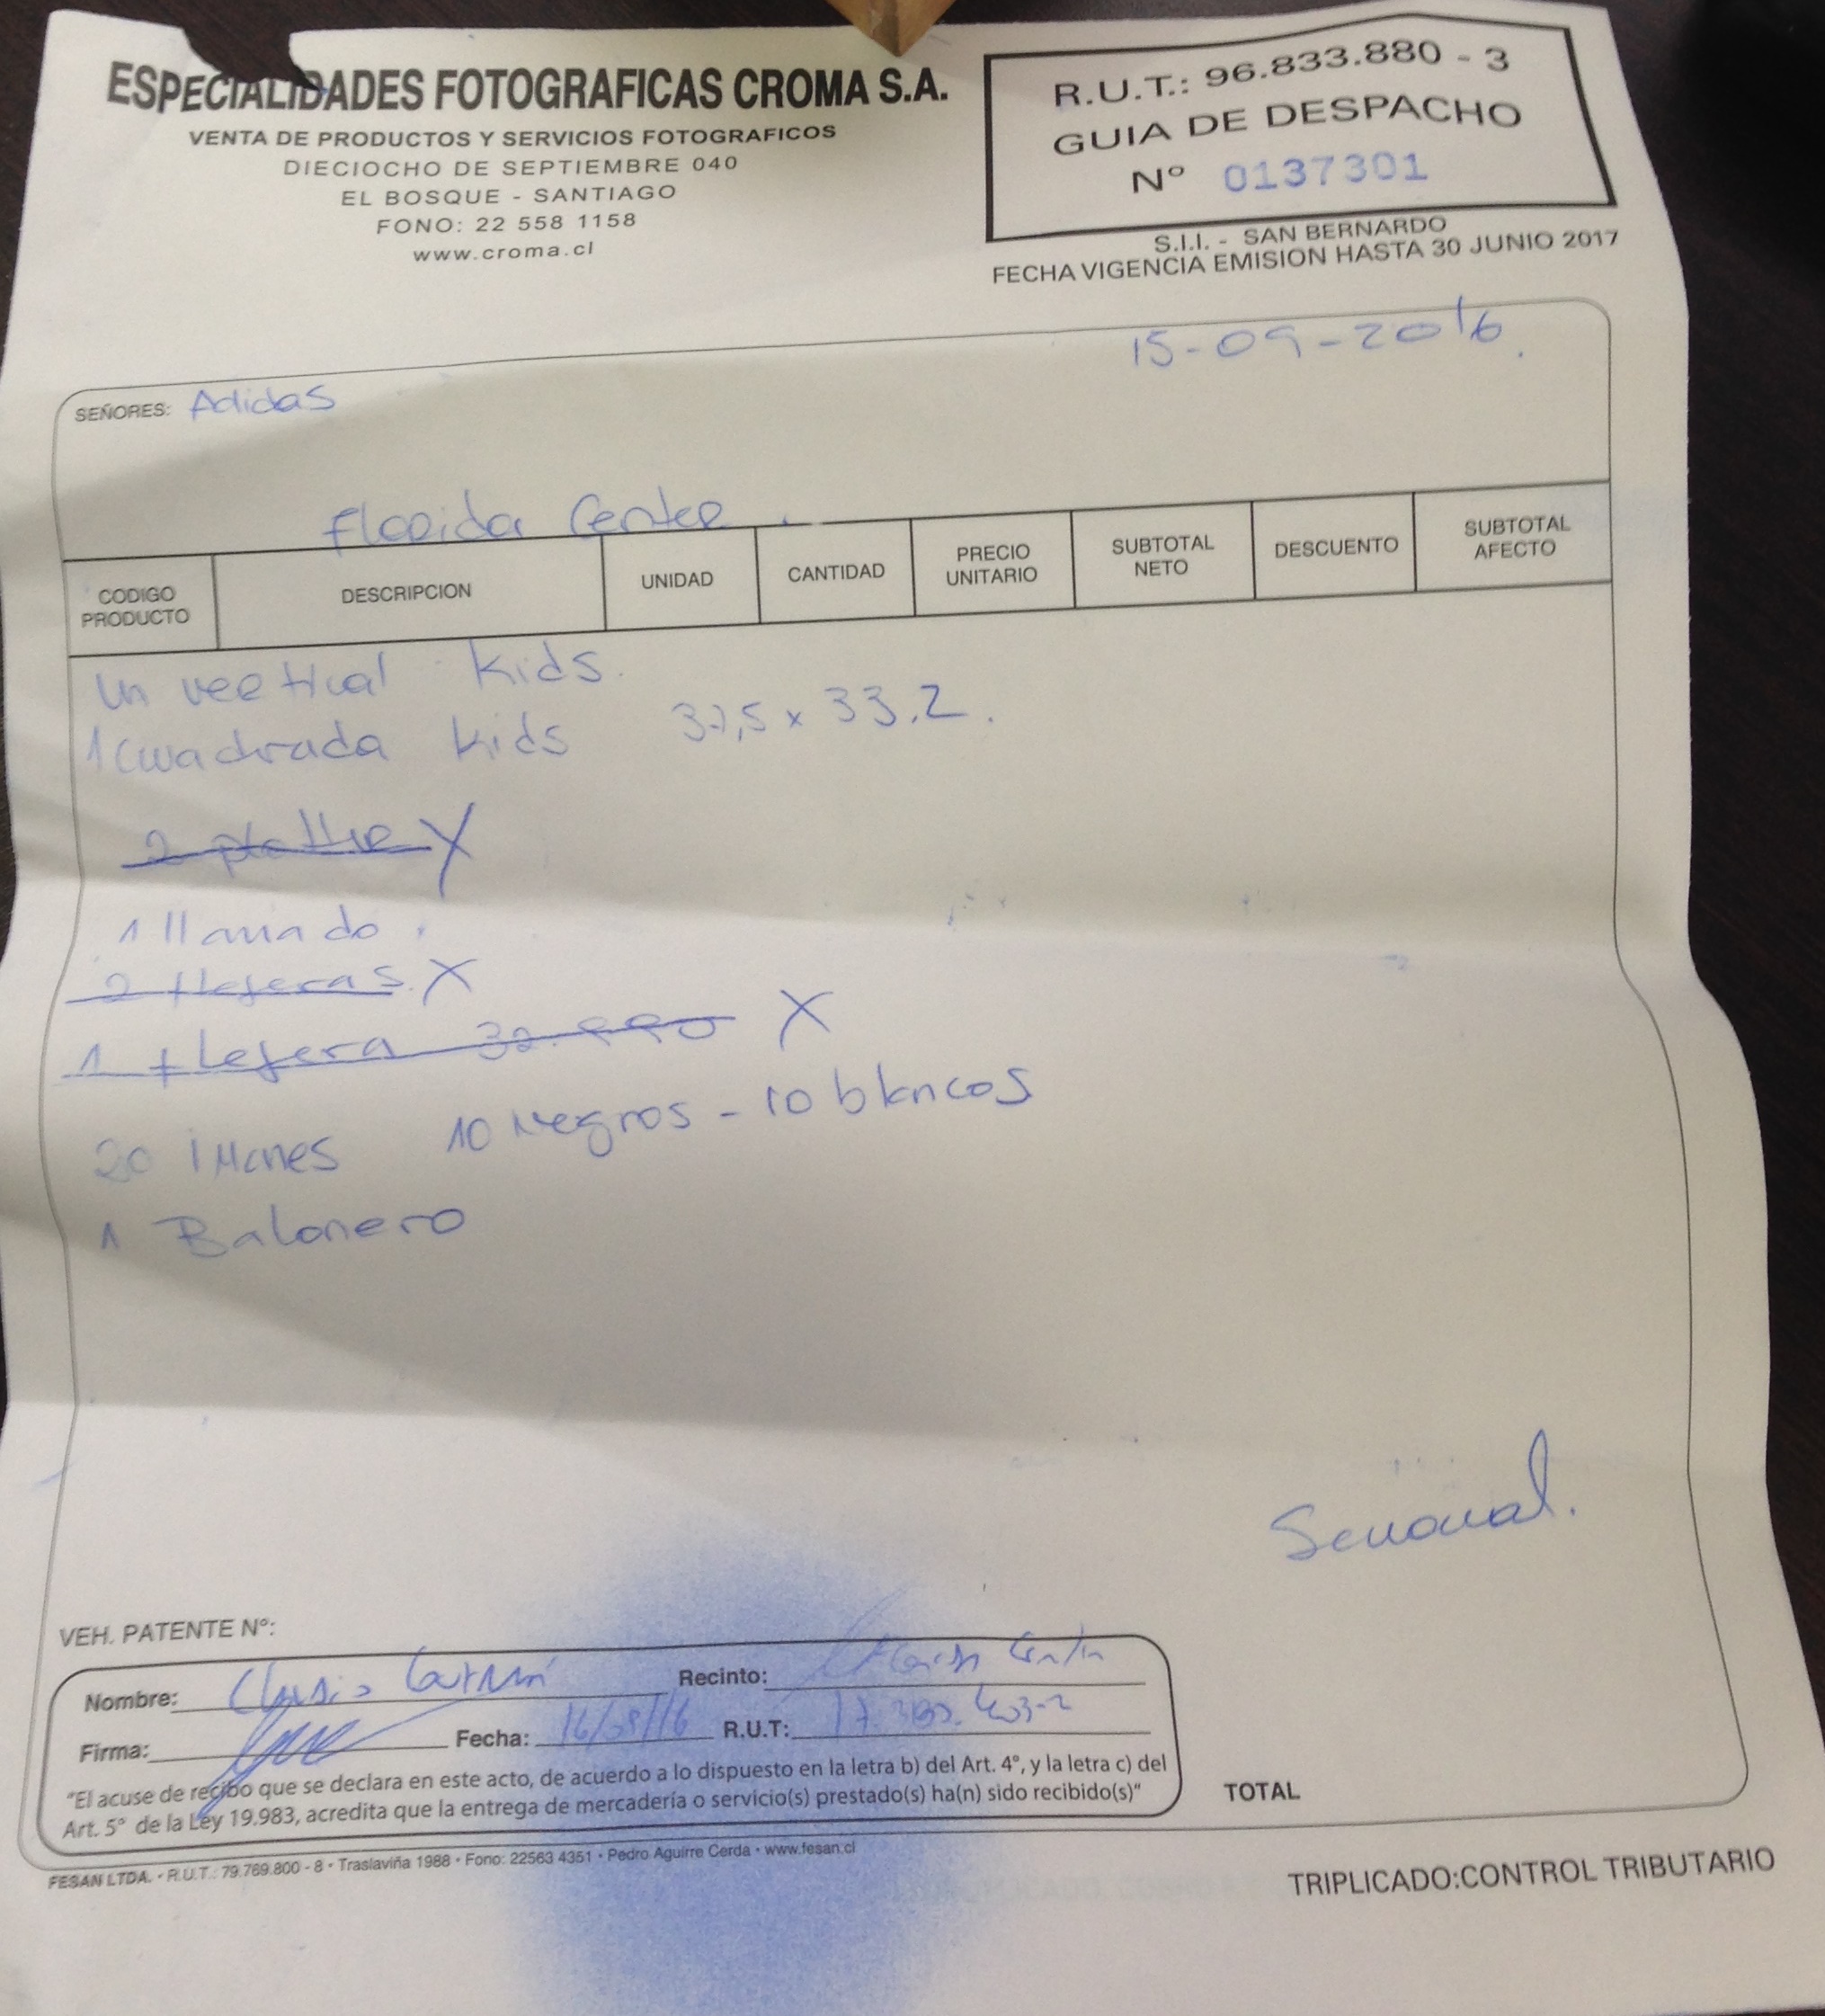 ESPECIALIDADES FOTOGRAFICAS CROMA S.A.
VENTA DE PRODUCTOS Y SERVICIOS FOTOGRAFICOS
DIECIOCHO DE SEPTIEMBRE 040
EL BOSQUE - SANTIAGO
FONO: 22 558 1158
www.croma.cl
R.U.T.: 96.833.880 - 3
GUIA DE DESPACHO
Nº 0137301
S.I.I. - SAN BERNARDO
FECHA VIGENCIA EMISION HASTA 30 JUNIO 2017
15-09-2016.
SEÑORES: Adidas
Florida Center.
CODIGO PRODUCTO DESCRIPCION UNIDAD CANTIDAD PRECIO UNITARIO SUBTOTAL NETO DESCUENTO SUBTOTAL AFECTO
Un vertical kids.
1 cuadrada kids 32,5 x 33,2.
2 X
1
2 X
1 X
20 imanes 10 negros - 10 blancos
1 Balonero
VEH. PATENTE N°:
Nombre: Recinto:
Firma: Fecha: R.U.T:
"El acuse de recibo que se declara en este acto, de acuerdo a lo dispuesto en la letra b) del Art. 4°, y la letra c) del
Art. 5° de la Ley 19.983, acredita que la entrega de mercadería o servicio(s) prestado(s) ha(n) sido recibido(s)"
TOTAL
FESAN LTDA. • R.U.T.: 79.769.800 - 8 • Traslaviña 1988 • Fono: 22563 4351 • Pedro Aguirre Cerda • www.fesan.cl
TRIPLICADO:CONTROL TRIBUTARIO